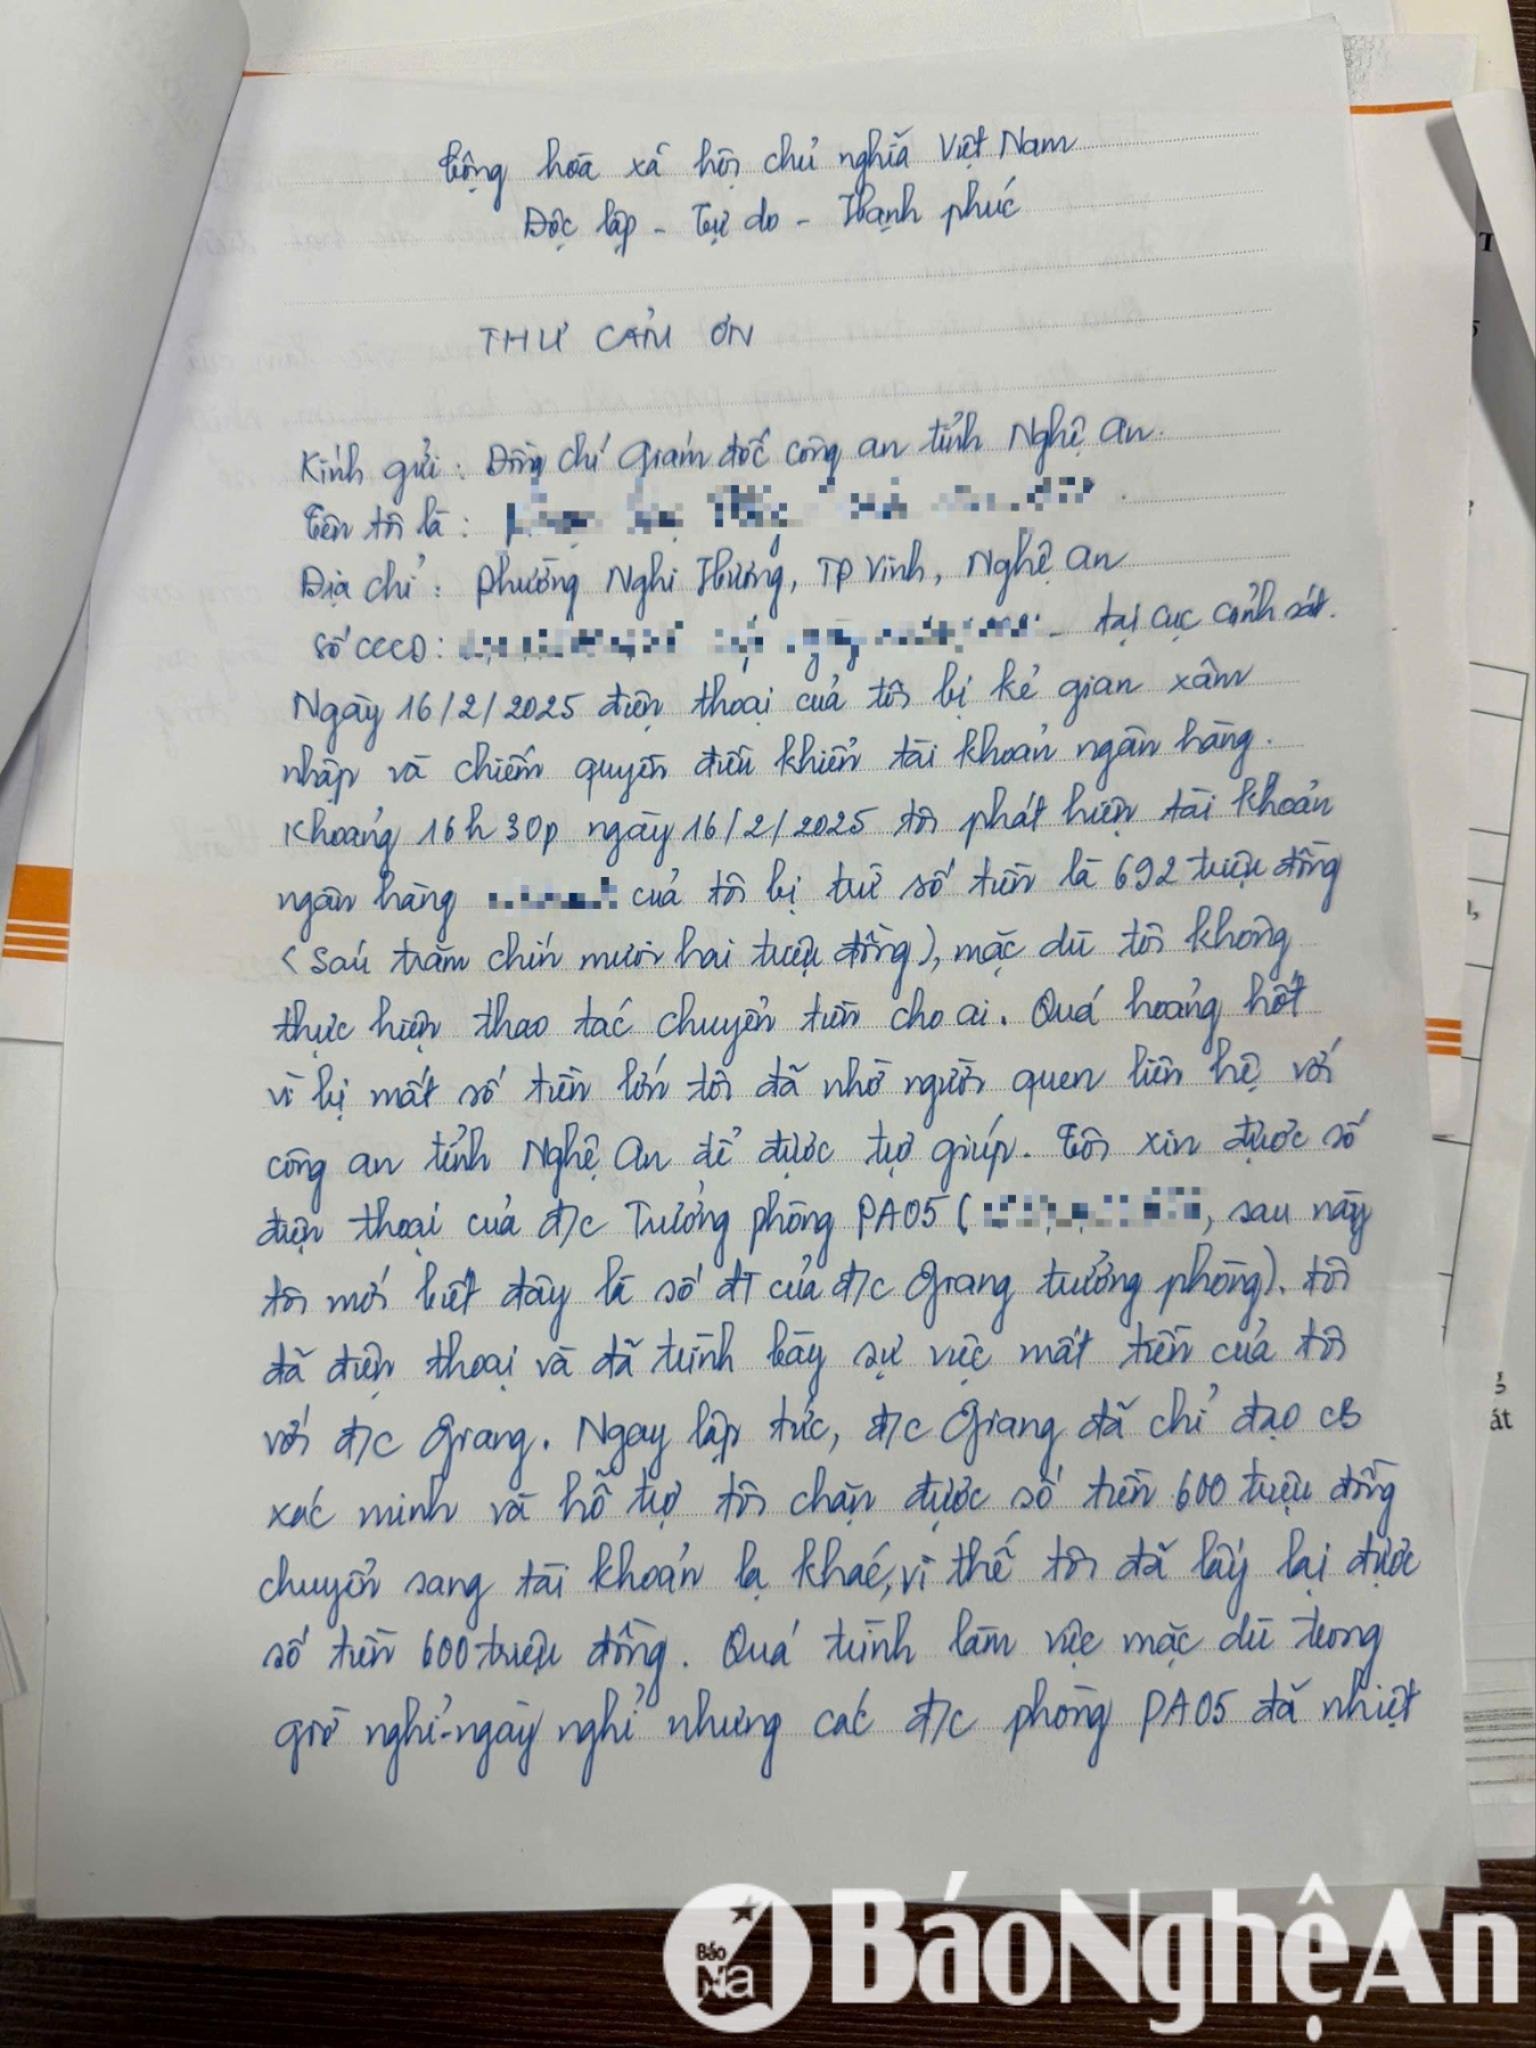 Cộng hoà xã hội chủ nghĩa Việt Nam
Độc lập - Tự do - Hạnh phúc
THƯ CẢM ƠN
Kính gửi: Đồng chí Giám đốc công an tỉnh Nghệ An.
Tên tôi là:
Địa chỉ: Phường Nghi Hương, TP Vinh, Nghệ An
Số CCCD: cấp ngày tại cục cảnh sát.
Ngày 16/2/2025 điện thoại của tôi bị kẻ gian xâm
nhập và chiếm quyền điều khiển tài khoản ngân hàng.
Khoảng 16h30p ngày 16/2/2025 tôi phát hiện tài khoản
ngân hàng của tôi bị trừ số tiền là 692 triệu đồng
(Sáu trăm chín mươi hai triệu đồng), mặc dù tôi không
thực hiện thao tác chuyển tiền cho ai. Quá hoảng hốt
vì bị mất số tiền lớn tôi đã nhờ người quen liên hệ với
công an tỉnh Nghệ An để được trợ giúp. Tôi xin được số
điện thoại của đ/c Trưởng phòng PA05 ( , sau này
tôi mới biết đây là số đT của đ/c Giang trưởng phòng). Tôi
đã điện thoại và đã trình bày sự việc mất tiền của tôi
với đ/c Giang. Ngay lập tức, đ/c Giang đã chỉ đạo CB
xác minh và hỗ trợ tôi chặn được số tiền 600 triệu đồng
chuyển sang tài khoản lạ khác, vì thế tôi đã lấy lại được
số tiền 600 triệu đồng. Quá trình làm việc mặc dù trong
giờ nghỉ-ngày nghỉ nhưng các đ/c phòng PA05 đã nhiệt
T
át
Báo
Na
BáoNghệAn